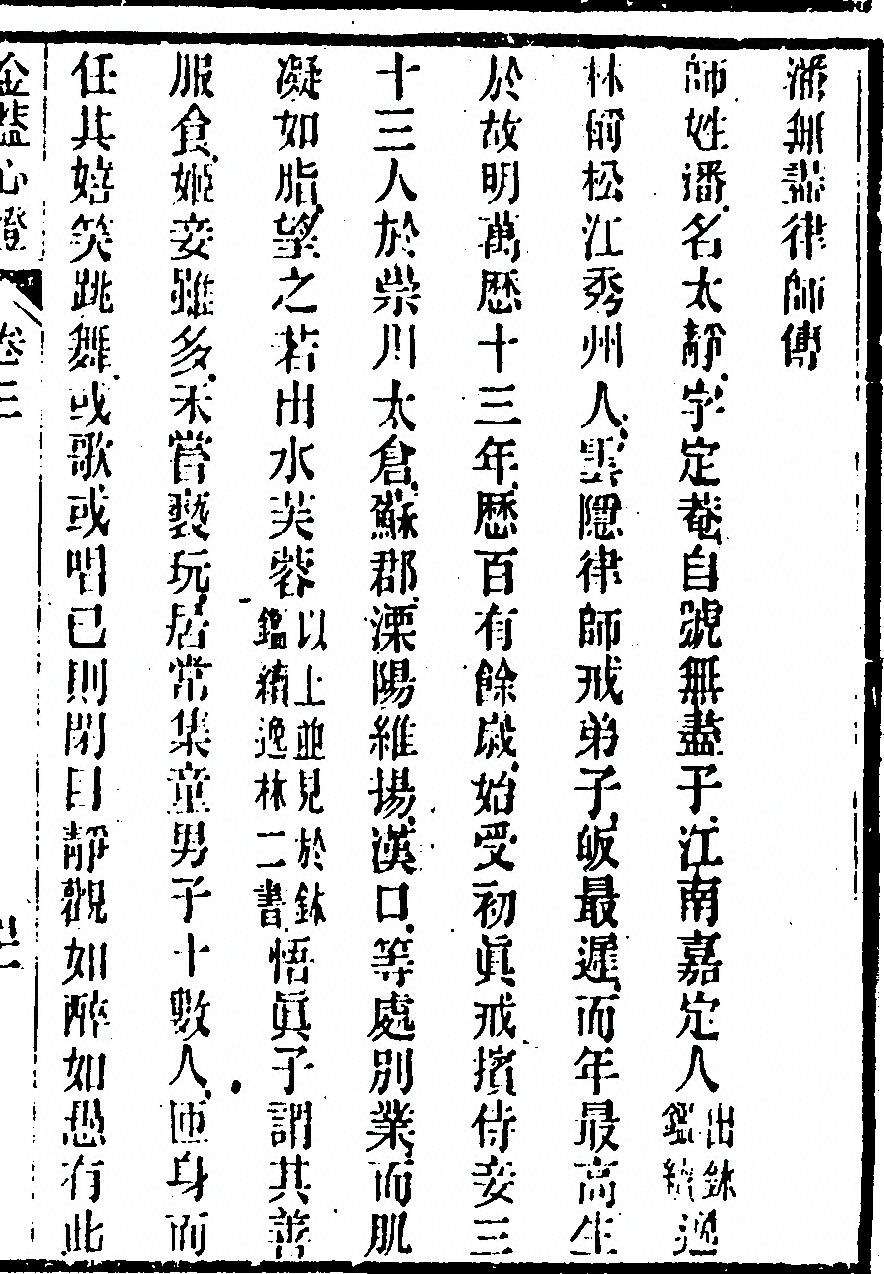 潘無盡律師傳
師姓潘名太靜字定菴自號無盡子江南嘉定人出鉢鑑續逸
林稱松江秀州人雲隱律師戒弟子皈最遲而年最高生
於故明萬歷十三年歷百有餘歲始受初眞戒擯侍妾三
十三人於崇川太倉蘇郡溧陽維揚漢口等處別業而肌
凝如脂望之若出水芙蓉以上並見於鉢鑑續逸林二書悟眞子謂其善
服食姬妾雖多未嘗褻玩居常集童男子十數人匝身而
任其嬉笑跳舞或歌或唱已則閉目靜觀如醉如愚有此
金蓋心燈 卷三